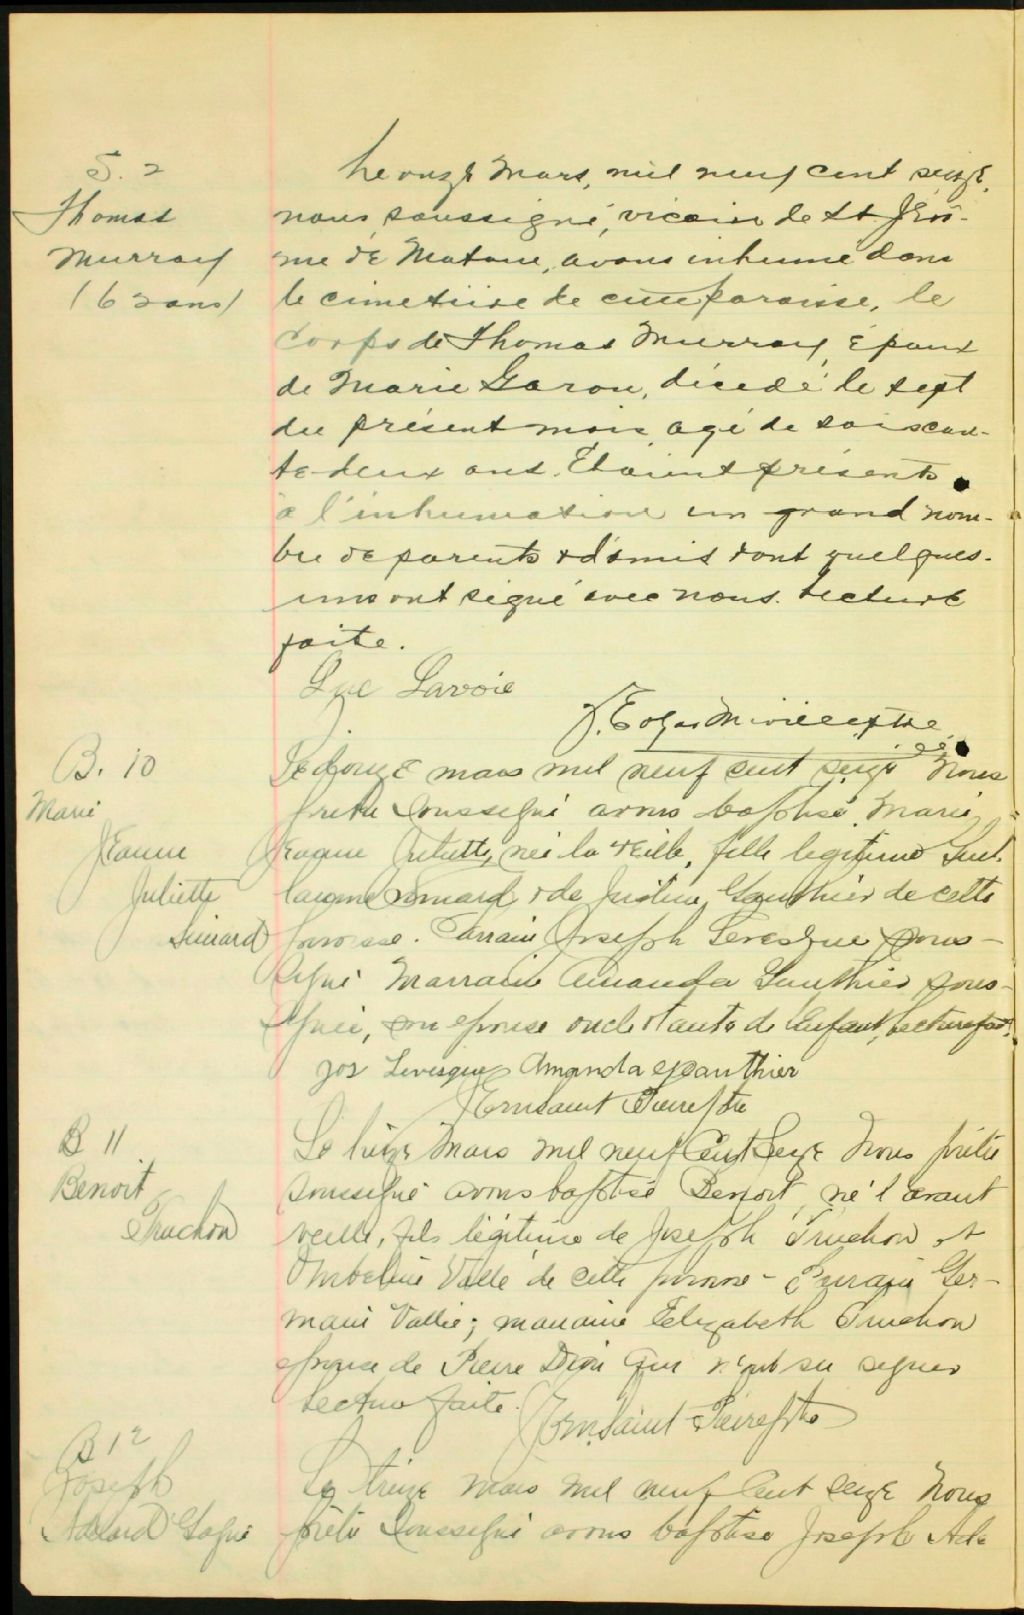 S. 2
Thomas
Murray
(62 ans)
Le onze Mars, mil neuf cent seize,
nous soussigné, vicaire de St Jérô-
me de Matane, avons inhumé dans
le cimetière de cette paroisse, le
Corps de Thomas Murray, Epoux
de Marie Garon, décédé le sept
du présent mois, agé de soixcan-
te-deux ans. Etaient présents
à l'inhumation un grand nom-
bre de parents & d'amis dont quelques-
uns ont signé avec nous. Lecture
faite.
Luc Lavoie
J. Edgar Miville ptre
B. 10
Marie
Jeanne
Juliette
Simard
Le douze mars mil neuf cent seize Nous
prêtre soussigné avons baptisé Marie
Jeanne Juliette, née la veille, fille légitime
Simard & de Justine Gauthier de cette
paroisse. Parrain Joseph Levesque sous-
signé Marraine Amanda Gauthier sous-
signée, son epouse oncle & tante de l'enfant, lecture faite.
Jos Levesque Amanda Gauthier
J Ern Saint Pierre ptre
B 11
Benoit
Truchon
Le treize Mars mil neuf Cent Seize Nous prêtre
soussigné avons baptisé Benoit, né l'avant
veille, fils légitime de Joseph Truchon et
Ombeline Vallé de cette paroisse - Parrain Ger-
main Vallée; marraine Elizabeth Truchon
epouse de Pierre Dion qui n'ont su signer
Lecture faite.
J Ern. Saint Pierre ptre
B 12
Joseph
Adelard Gagné
Le treize mars mil neuf Cent seize Nous
prêtre soussigné avons baptisé Joseph Ade